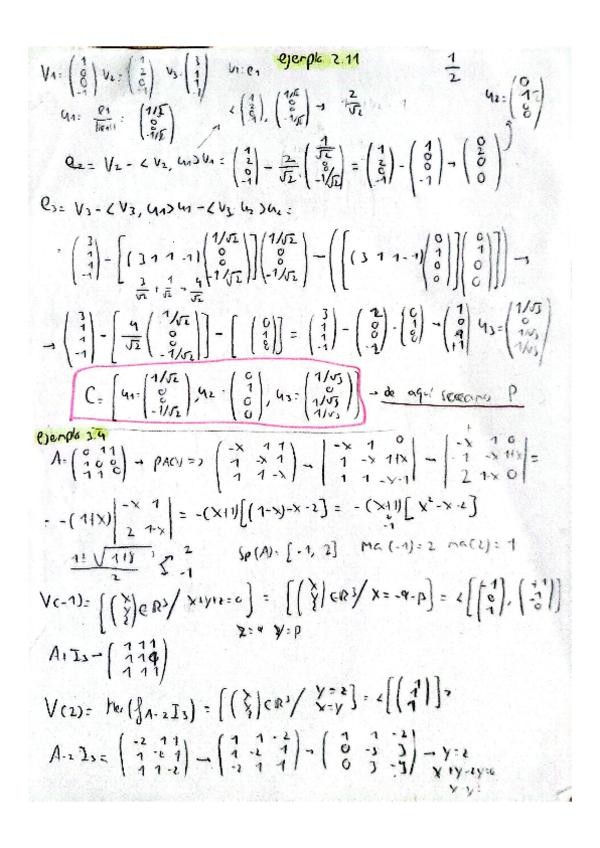 ejemplo 2.11
V₁ = (1 0 0 -1) V₂ = (1 2 0 -1) V₃ = (3 1 1 -1) u₁ = e₁ 1/2
u₁ = e₁/||e₁|| = (1/√2 0 0 -1/√2) <(1 2 0 -1), (1/√2 0 0 -1/√2) → 2/√2 u₂ = (0 1 0 0)
e₂ = V₂ - <V₂, u₁>u₁ = (1 2 0 -1) - 2/√2 (1/√2 0 0 -1/√2) = (1 2 0 -1) - (1 0 0 -1) → (0 2 0 0)
e₃ = V₃ - <V₃, u₁>u₁ - <V₃, u₂>u₂ =
(3 1 1 -1) - [(3 1 1 -1)(1/√2 0 0 -1/√2)](1/√2 0 0 -1/√2) - ([(3 1 1 -1)(0 1 0 0)](0 1 0 0)) →
3/√2 + 1/√2 = 4/√2
→ (3 1 1 -1) - [4/√2 (1/√2 0 0 -1/√2)] - [(0 1 0 0)] = (3 1 1 -1) - (2 0 0 -2) - (0 1 0 0) → (1 0 1 +1) u₃ = (1/√3 0 1/√3 1/√3)
C = [u₁ = (1/√2 0 0 -1/√2), u₂ = (0 1 0 0), u₃ = (1/√3 0 1/√3 1/√3)] → de aquí sacamos P
ejemplo 3.4
A = (0 1 1 1 0 0 1 1 0) → PA(x) => (-x 1 1 1 -x 1 1 1 -x) → |-x 1 0 1 -x 1+x 1 1 -x-1| → |-x 1 0 1 -x 1+x 2 1-x 0| =
= -(1+x) |-x 1 2 1-x| = -(x+1)[(1-x)-x-2] = -(x+1)[x²-x-2]
1±√1+8 / 2 2 -1 Sp(A) = [-1, 2] ma(-1) = 2 ma(2) = 1
V(-1) = [(x y z) ∈ R³ / x+y+z=0] = [(x y z) ∈ R³ / x = -α-β] = <[(-1 0 1), (-1 1 0)]
z=α y=β
A+I₃ → (1 1 1 1 1 1 1 1 1)
V(2) = Ker(f A-2I₃) = [(x y z) ∈ R³ / y=z x=y] = <[(1 1 1)]>
A-2I₃ = (-2 1 1 1 -2 1 1 1 -2) → (1 1 -2 1 -2 1 -2 1 1) → (1 1 -2 0 -3 3 0 3 -3) → y=z
x+y-2y=0
x=y